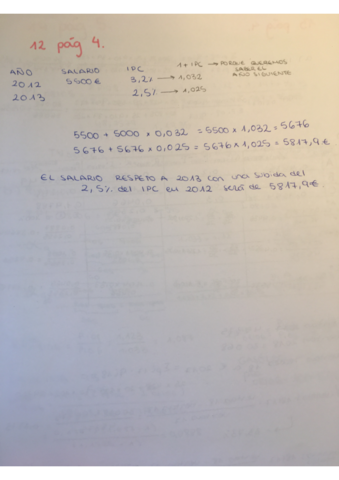 12 pág 4.
AÑO SALARIO IPC 1 + IPC → PORQUE QUEREMOS SABER EL AÑO SIGUIENTE
2012 5500€ 3,2% → 1,032
2013 2,5% → 1,025
5500 + 5000 x 0,032 = 5500 x 1,032 = 5676
5676 + 5676 x 0,025 = 5676 x 1,025 = 5817,9€
EL SALARIO RESPETO A 2013 con una subida del
2,5% del IPC en 2012 será de 5817,9€.